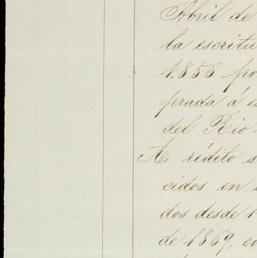 Abril de
la escritu
1856 po
prada á e
del Rio
A rédito s
cidos en
dos desde 1
de 1869, co